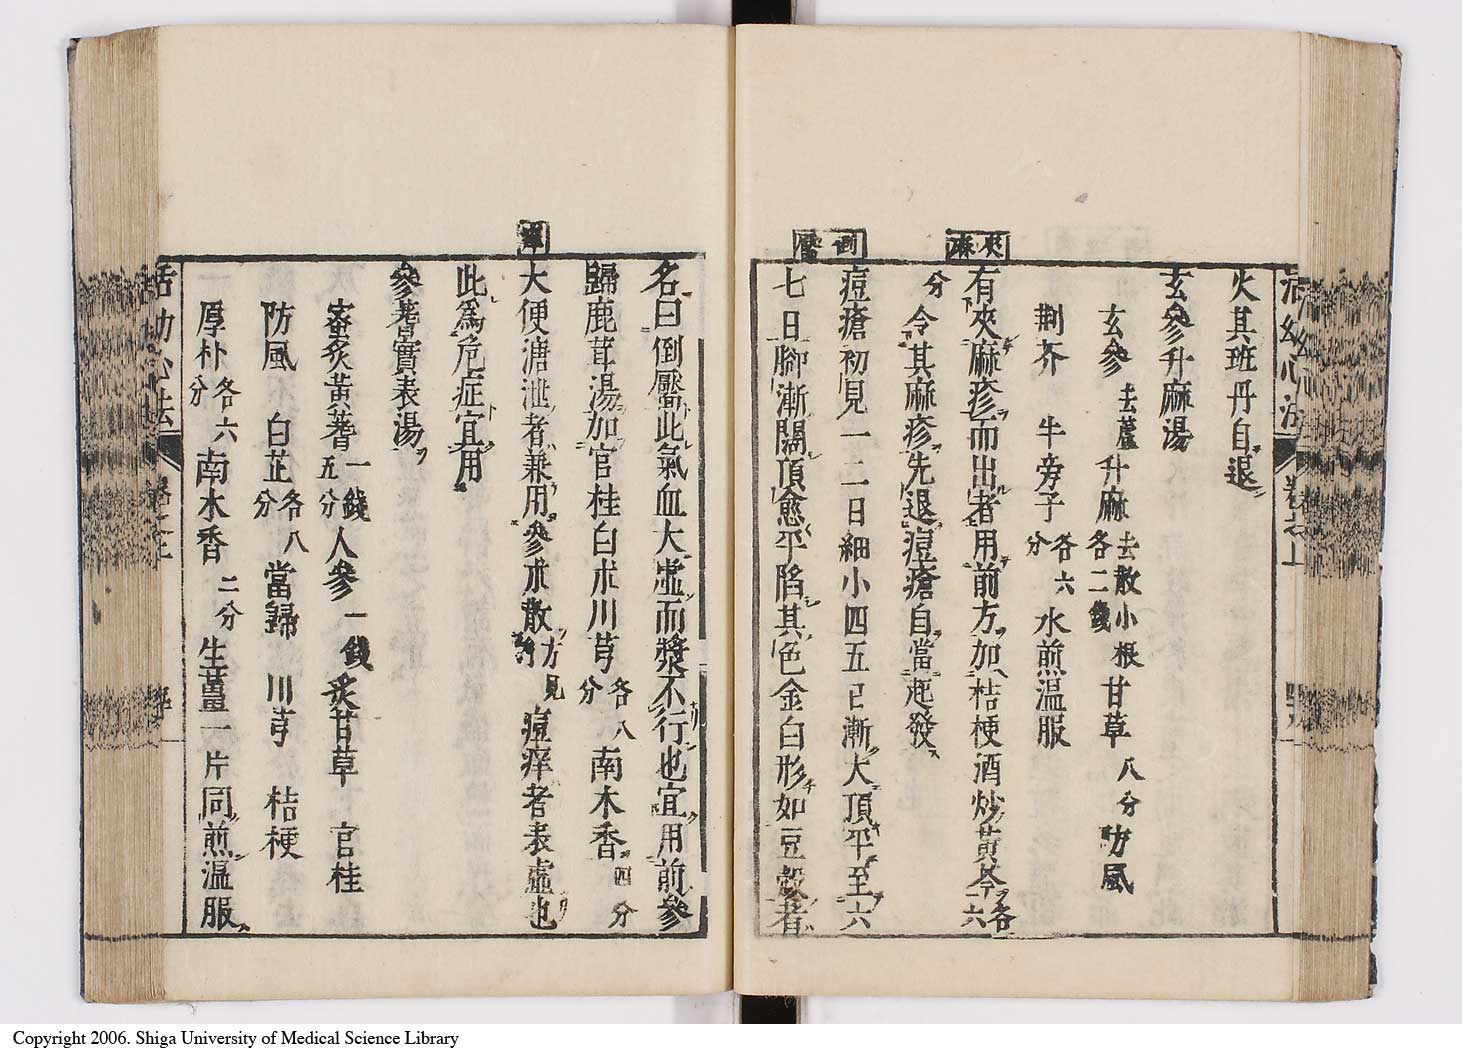 活幼心法
卷之上
火其班丹自退
玄參升麻湯
玄參去蘆升麻去散小根各二錢甘草八分防風
荆芥牛旁子各六分水煎溫服
夾麻
有夾麻疹而出者用前方加桔梗酒炒黃芩各六
分令其麻疹先退痘瘡自當起發
倒靨
痘瘡初見一二日細小四五日漸大頂平至六
七日腳漸闊頂愈平陷其色金白形如豆殼者
名曰倒靨此氣血大虛而漿不行也宜用前參
歸鹿茸湯加官桂白朮川芎各八分南木香四分
大便溏泄者兼用參朮散方見痘痒者表虛也
此為危症宜用
參耆實表湯
蜜炙黃耆一錢五分人參一錢炙甘草官桂
防風白芷各八分當歸川芎桔梗
厚朴各六分南木香二分生薑一片同煎溫服
活幼心法
Copyright 2006. Shiga University of Medical Science Library